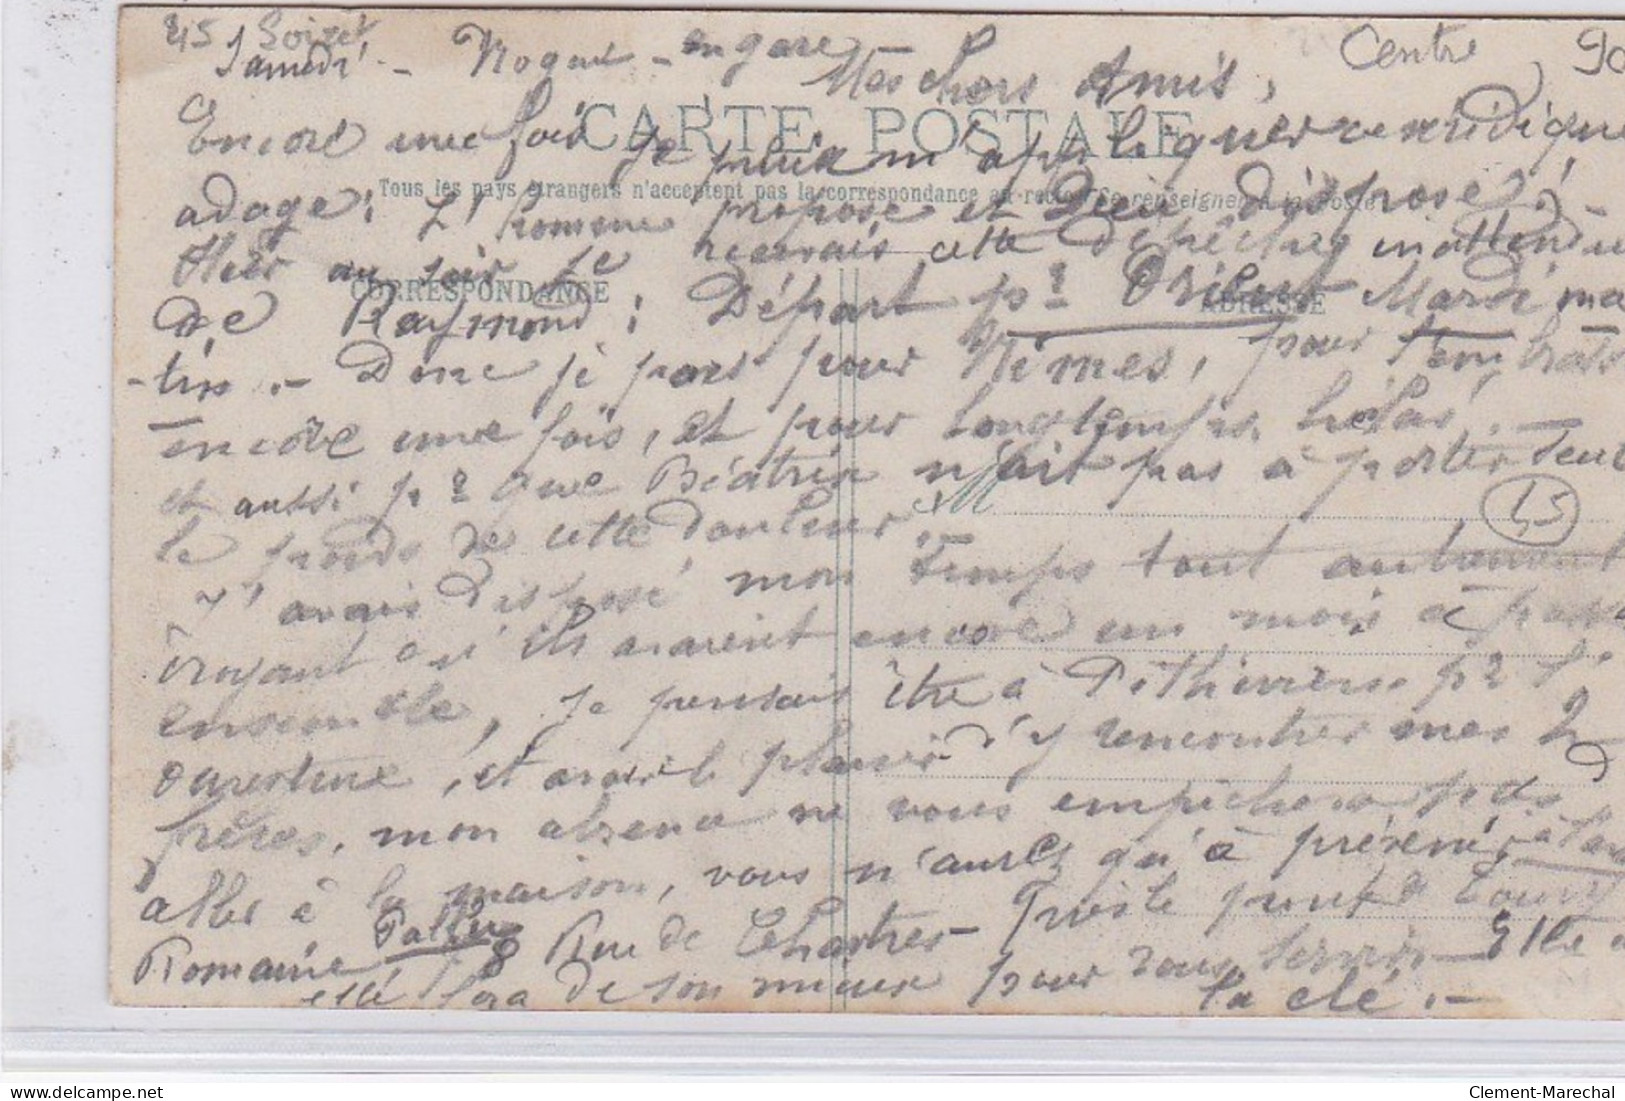 45 Loiret
Samedi - Nogent - en gare Centre 90
Mes chers Amis,
CARTE POSTALE
Encore une fois je puis m'appliquer ce véridique
Tous les pays étrangers n'acceptent pas la correspondance au recto. (Se renseigner à la Poste)
adage: L'homme propose et Dieu dispose! -
Hier au soir je recevais cette dépêche inattendue
CORRESPONDANCE
ADRESSE
de Raymond: Départ pr Mardi ma
-tin. - Donc je pars pour Nîmes, pour l'embrass
encore une fois, et pour longtemps, hélas! -
et aussi pr que Béatrix n'ait pas à porter seule
15
le poids de cette douleur.
J'avais disposé mon temps tout autrement
croyant qu'ils avaient encore un mois à passer
ensemble, je pensais être à Pithiviers pr l'
ouverture, et avoir le plaisir d'y rencontrer mes 2
frères. mon absence ne vous empêchera pas
aller à la maison, vous n'aurez qu'à prévenir
Romaine 8 Rue de Chartres - Elle a
elle fera de son mieux pour vous servir. -
la clé. -
Clement-Marechal